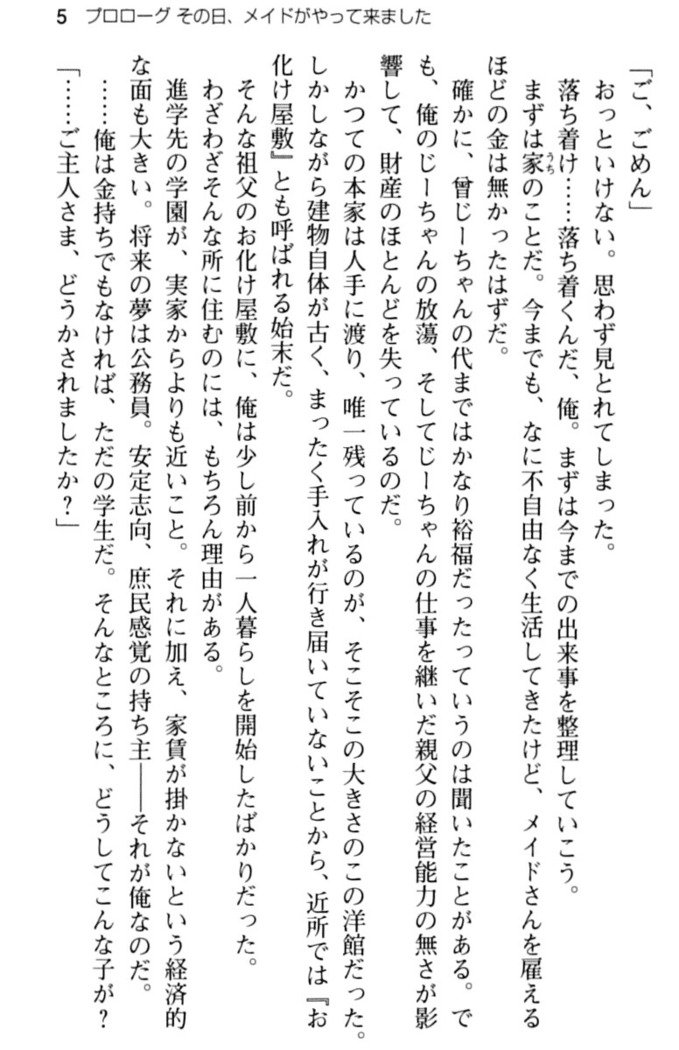 5 プロローグ その日、メイドがやって来ました
「ご、ごめん」
おっといけない。思わず見とれてしまった。
落ち着け……落ち着くんだ、俺。まずは今までの出来事を整理していこう。
まずは家うちのことだ。今までも、なに不自由なく生活してきたけど、メイドさんを雇える
ほどの金は無かったはずだ。
確かに、曾じーちゃんの代まではかなり裕福だったっていうのは聞いたことがある。で
も、俺のじーちゃんの放蕩、そしてじーちゃんの仕事を継いだ親父の経営能力の無さが影
響して、財産のほとんどを失っているのだ。
かつての本家は人手に渡り、唯一残っているのが、そこそこの大きさのこの洋館だった。
しかしながら建物自体が古く、まったく手入れが行き届いていないことから、近所では『お
化け屋敷』とも呼ばれる始末だ。
そんな祖父のお化け屋敷に、俺は少し前から一人暮らしを開始したばかりだった。
わざわざそんな所に住むのには、もちろん理由がある。
進学先の学園が、実家からよりも近いこと。それに加え、家賃が掛かないという経済的
な面も大きい。将来の夢は公務員。安定志向、庶民感覚の持ち主――それが俺なのだ。
……俺は金持ちでもなければ、ただの学生だ。そんなところに、どうしてこんな子が？
「……ご主人さま、どうかされましたか？」